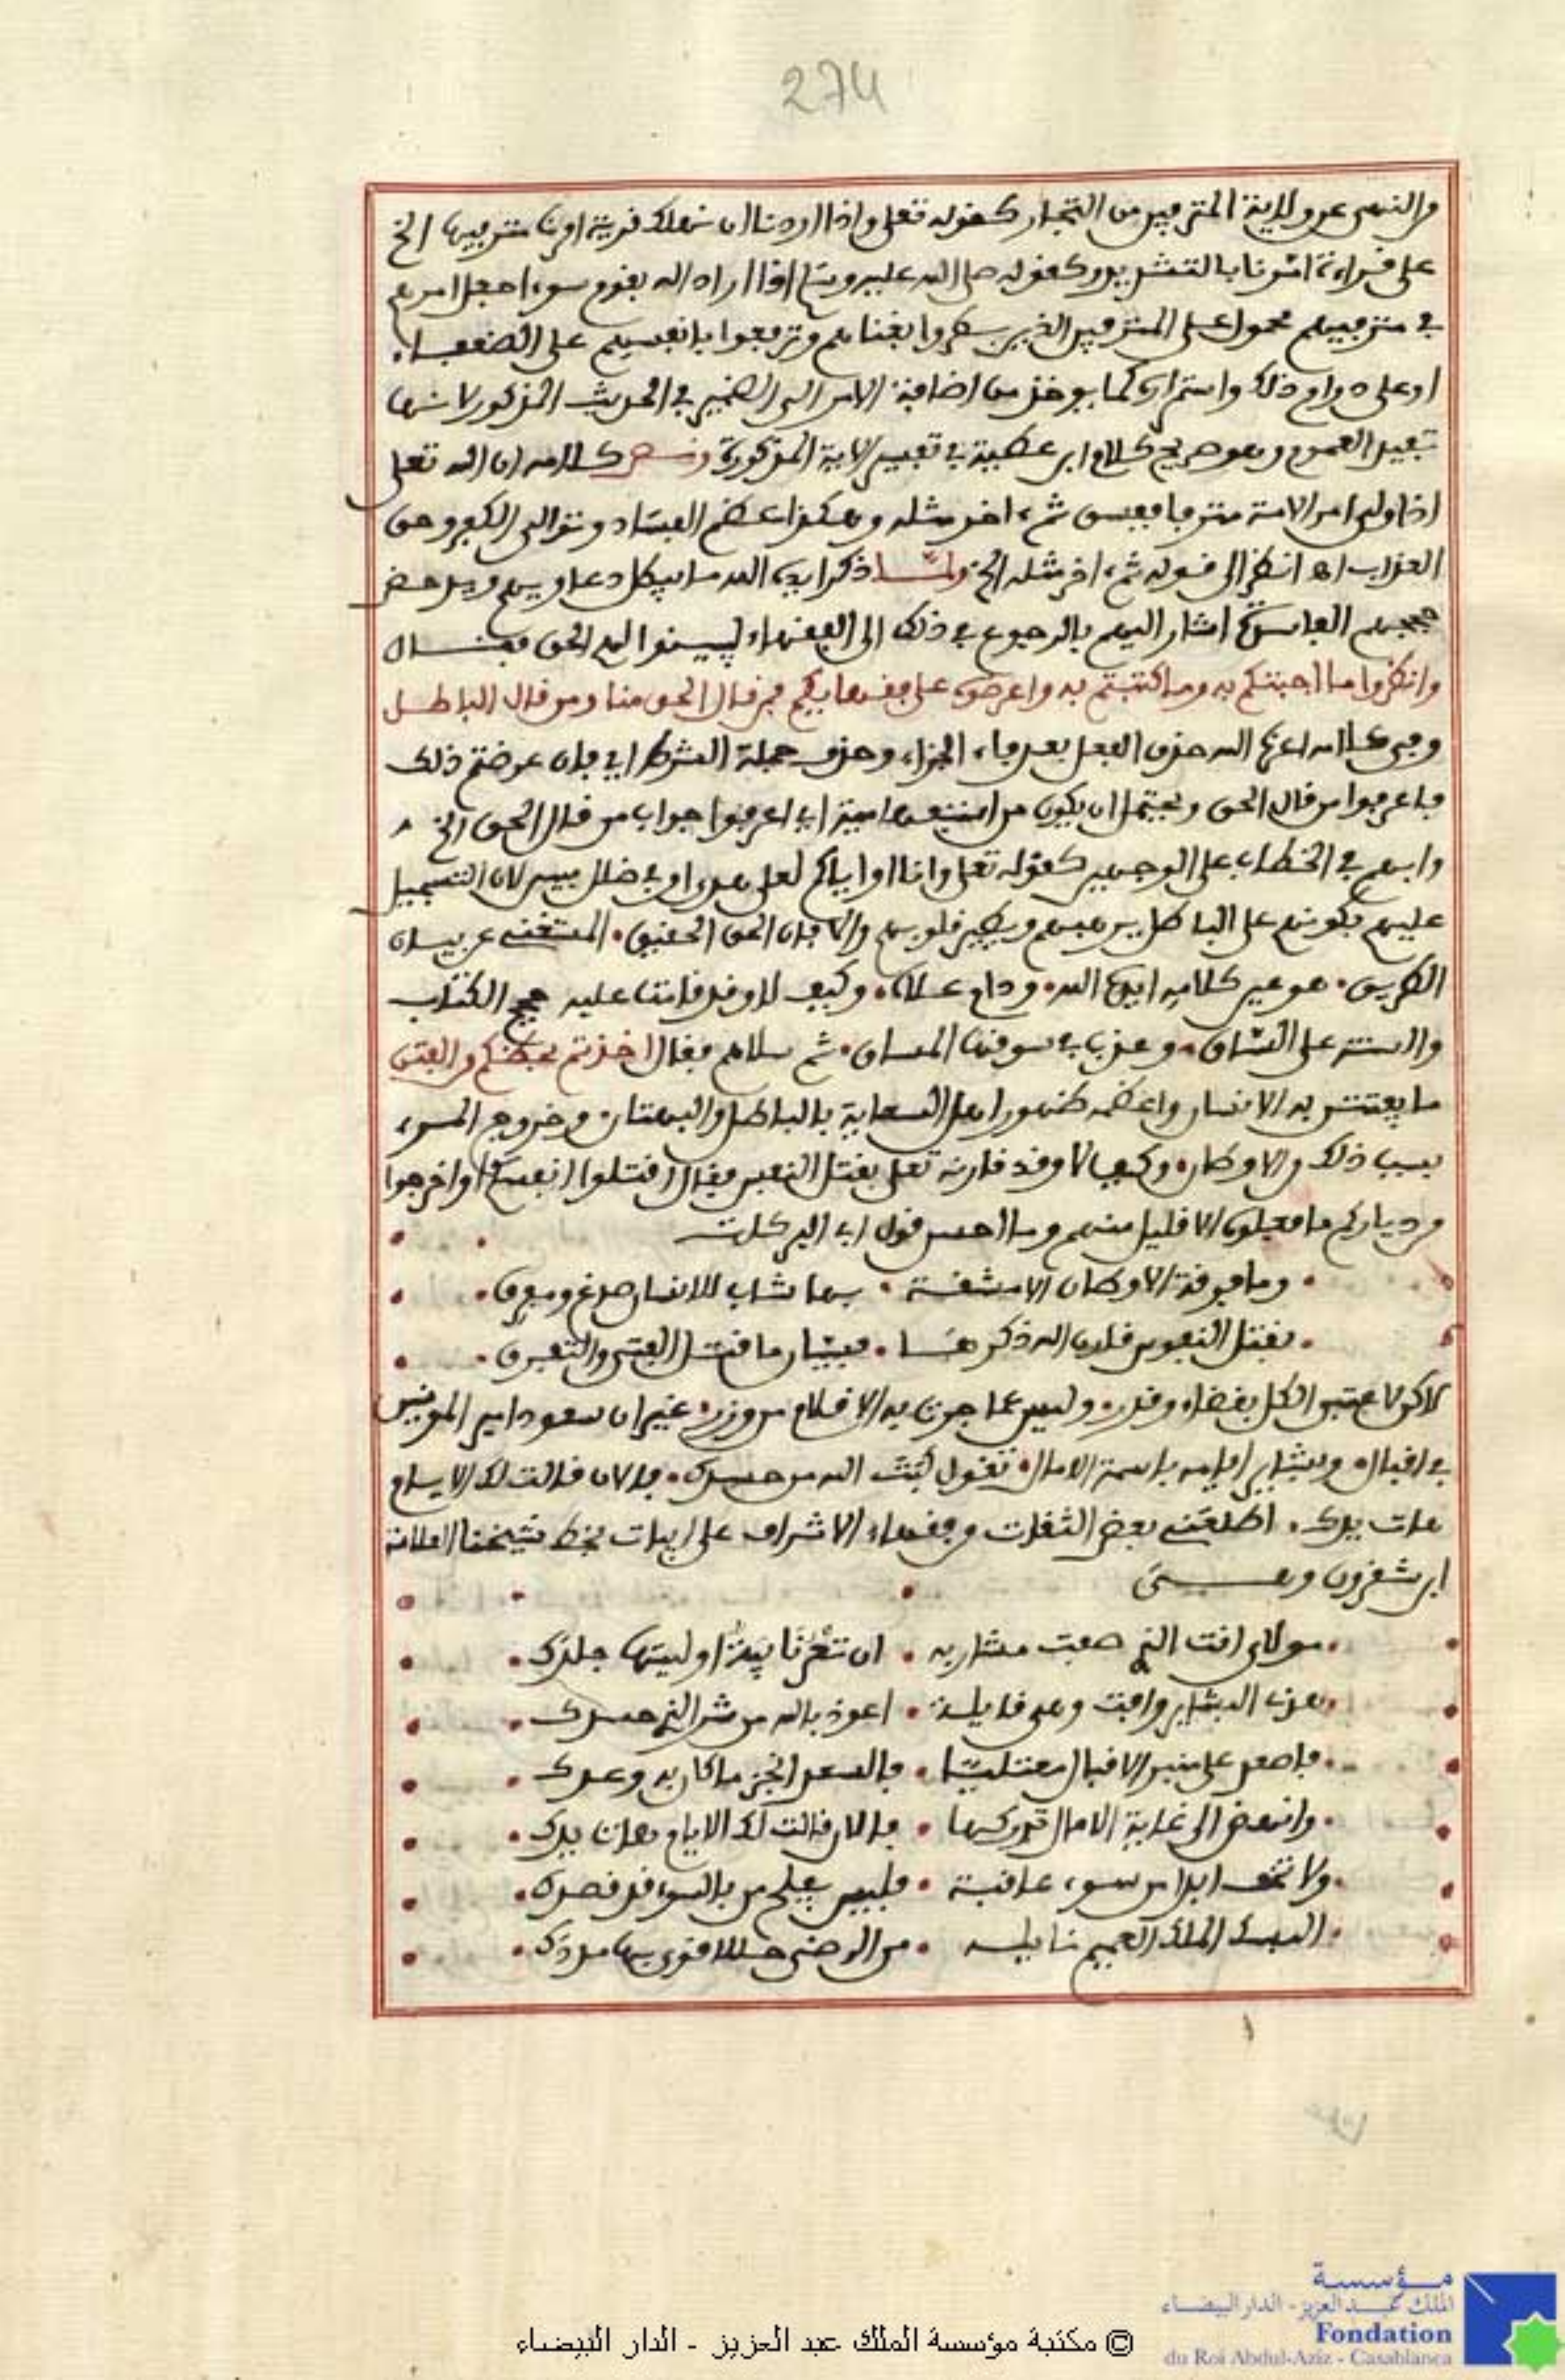 274
من النهي عن ولاية المترفين من التجار كقوله تعلى واذا اردنا ان نهلك قرية امرنا مترفيها الخ
على قراءة امّرنا بالتشديد وكقوله صلى الله عليه وسلم اذا اراد الله بقوم سوءا جعل امرهم
في مترفيهم محمول على المترفين الذين بطروا بغناهم وترفعوا بانفسهم على الضعفاء
او على دوام ذلك واستمراره كما يوخذ من اضافة الامر الى الضمير في الحديث المذكور لانها
تفيد العموم وهو صريح كلام ابن عطية في تفسير الاية المذكورة ونص كلامه ان الله تعلى
اذا ولى امر الامة مترفا ففسق ثم ءاخر مثله وهكذا عظم الفساد وتوالى الكفر وحق
العذاب اه انظر الى قوله ثم ءاخر مثله الخ ولما ذكر ايده الله ما يبطل دعاويهم ويدحض
حججهم الفاسدة اشار اليهم بالرجوع في ذلك الى الفقهاء ليبينوا لهم الحق فقال
وانظروا ما اجبتكم به وما كتبتم به واعرضوه على فقهايكم فمن قال الحق منا ومن قال الباطل
وفي كلامه اعزه الله حذف الفعل بعد فاء الجزاء وحذف جملة الشرط اي فان عرضتم ذلك
فاعرفوا من قال الحق ويحتمل ان يكون من استفهامية اي اعرفوا جواب من قال الحق الخ
وابهم في الخطاب على الوجهين كقوله تعلى وانا او اياكم لعلى هدى او في ضلل مبين لان التسجيل
عليهم بكونهم على الباطل يرهبهم ويطير قلوبهم والا فان الحق الحقيق المستغنى عن بيان
الطريق هو عين كلامه ايده الله ودام علاه وكيف لا وقد قامت عليه حجج الكتاب
والسنة على الساق وعذب في سوقها المساق ثم سلاهم فقال اخذتم بحظكم من الفتن
ما يفتتن به الانسان واعظمه ظهور اهل السعاية بالباطل والبهتان وخروج المرء
بسبب ذلك من الاوطان وكيف لا وقد قارنه تعلى بقتل النفس فقال اقتلوا انفسكم او اخرجوا
من دياركم ما فعلوه الا قليل منهم وما احسن قول ابي البركات
وما فرقة الاوطان الا مشقة بها شاب للانسان صدغ ومفرق
بقتل النفوس قارن الله ذكرها فسيان ما قتل الفتى والتفرق
لاكن لا عتب الكل بقضاء وقدر وليس عما جرت به الاقلام من وزر غير ان سعود امير المومنين
في اقبال وبشاير ايامه باسمة الامال تقول كبت الله من حسدك فالان قالت لك الايام
هات يدك اطلعني بعض الثقات من فقهاء الاشراف على ابيات بخط شيخنا العلامة
ابن شقرون وهي
مولاي انت الذي صفت مشاربه ان تعزنا يد اوليتها جلدك
هذي البشاير وافت وهي قايلة اعوذ بالله من شر الذي حسدك
فاصعد على منبر الاقبال معتليا فالسعد انجز ما كان به وعدك
وانهض الى غاية الامال تدركها فالان قالت لك الايام هات يدك
ولا تخف ابدا من سوء عاقبة فليس يفلح من بالسوء قد قصدك
البسك الملك العميم نايله من الرضى حللا قوى بها مددك
مؤسسة
الملك عبد العزيز - الدار البيضاء
Fondation
du Roi Abdul-Aziz - Casablanca
© مكتبة مؤسسة الملك عبد العزيز - الدار البيضاء